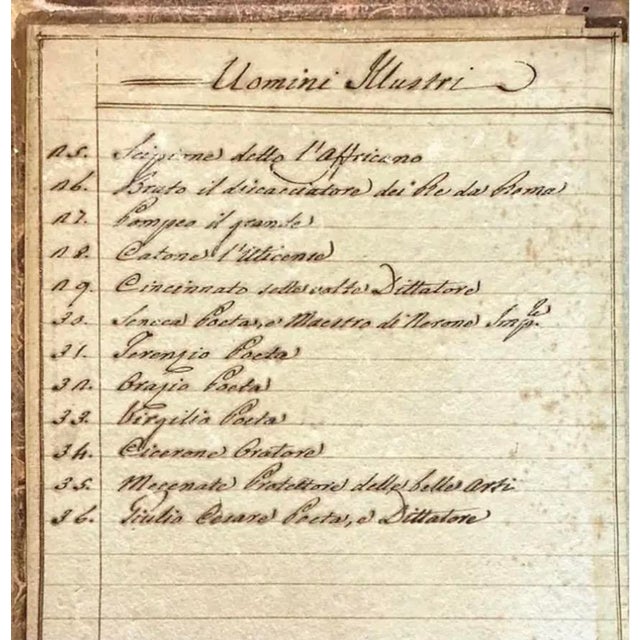 Uomini Illustri
25. Scipione detto l'Affricano
26. Bruto il discacciatore dei Re da Roma
27. Pompeo il grande
28. Catone l'Uticense
29. Cincinnato sette volte Dittatore
30. Seneca Poeta, e Maestro di Nerone Imp.re
31. Terenzio Poeta
32. Orazio Poeta
33. Virgilio Poeta
34. Cicerone Oratore
35. Mecenate Protettore delle belle arti
36. Giulio Cesare Poeta, e Dittatore